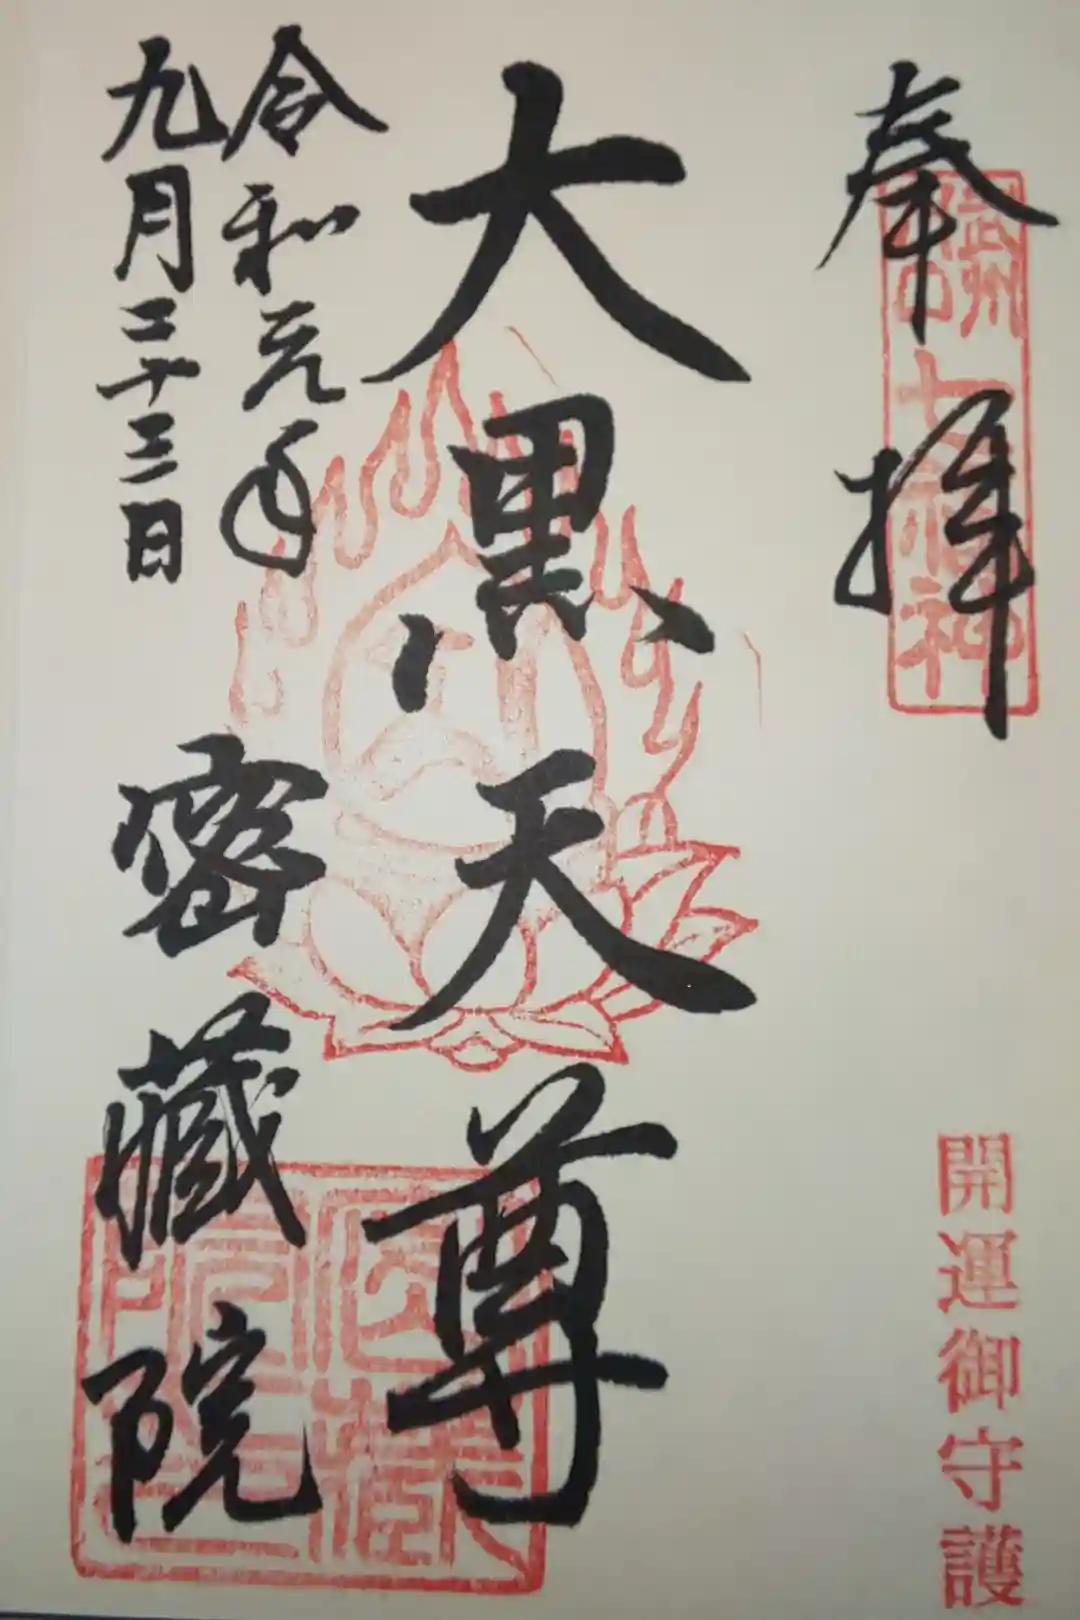 奉拝
武州川口七福神
開運御守護
大黒天尊
令和元年
九月二十三日
密蔵院